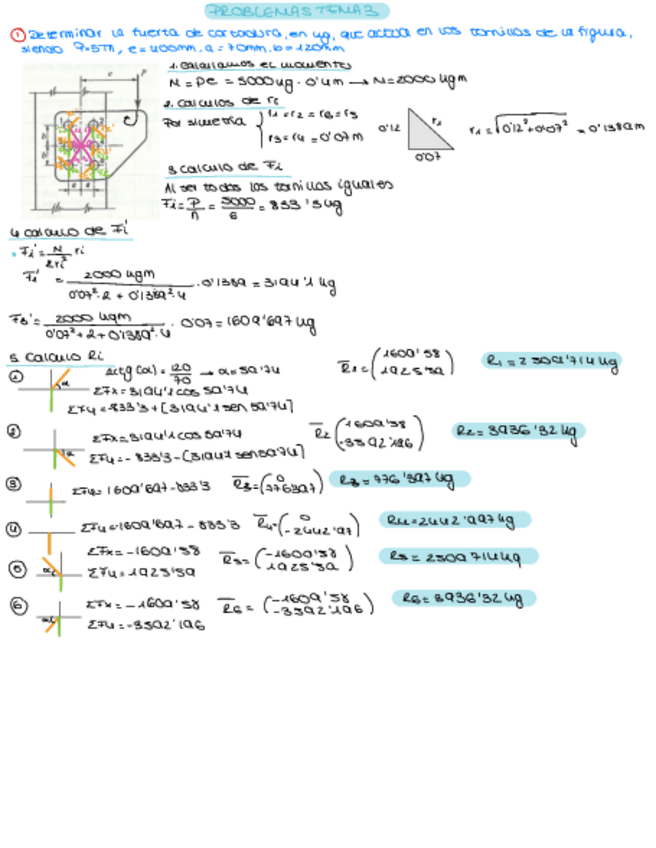 PROBLEMAS TEMA 3
① Determinar la fuerza de cortadura, en kg, que actúa en los tornillos de la figura,
siendo P=5Tn, e=400mm, a=70mm, b=120mm
1. Calculamos el momento
M = Pe = 5000kg · 0'4m → M=2000kgm
2. Calculos de ri
Por simetria r1=r2=r6=r5
r3=r4=0'07m
0'12
r1
0'07
r1=√0'12²+0'07² = 0'1389m
3. Calculo de Fi
Al ser todos los tornillos iguales
Fi = P/n = 5000/6 = 833'3kg
4. Calculo de Fi'
Fi' = M/Σri² ri
F1' = 2000kgm/0'07²·2+0'1389²·4 · 0'1389 = 3194'1 kg
F3' = 2000kgm/0'07²+2+0'1389²·4 · 0'07 = 1609'697kg
5. Calculo Ri
① arctg(α) = 120/70 → α=59'74
ΣFx=3194'1cos59'74
ΣFy=-833'3+[3194'1sen59'74]
R1=(1609'58 1925'59)
R1=2509'714kg
② ΣFx=3194'1cos59'74
ΣFy=-833'3-[3194'1sen59'74]
R2(1609'58 -3592'196)
R2=3936'32kg
③ ΣFy=1609'697-833'3
R3=(0 776'397)
R3=776'397kg
④ ΣFy=-1609'697-833'3
R4=(0 -2442'997)
R4=2442'997kg
⑤ ΣFx=-1609'58
ΣFy=1925'59
R5=(-1609'58 1925'59)
R5=2509'714kg
⑥ ΣFx=-1609'58
ΣFy=-3592'196
R6=(-1609'58 -3592'196)
R6=3936'32kg